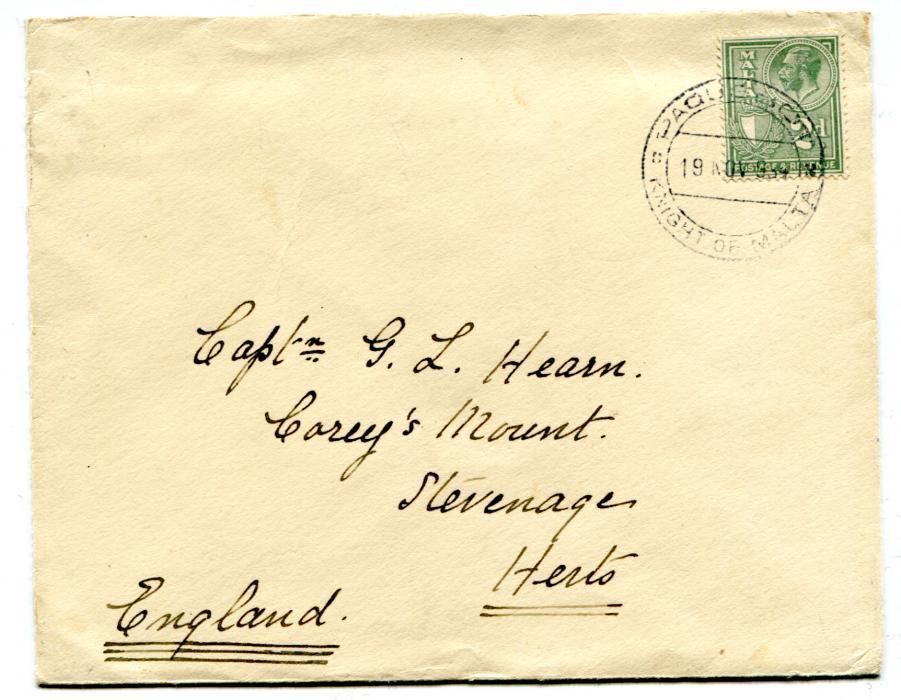 MALTA
POSTAGE & REVENUE
PAQUEBOT
19 NOV 934
KNIGHT OF MALTA
Captn G. L. Hearn.
Corey's Mount.
Stevenage
Herts
England.